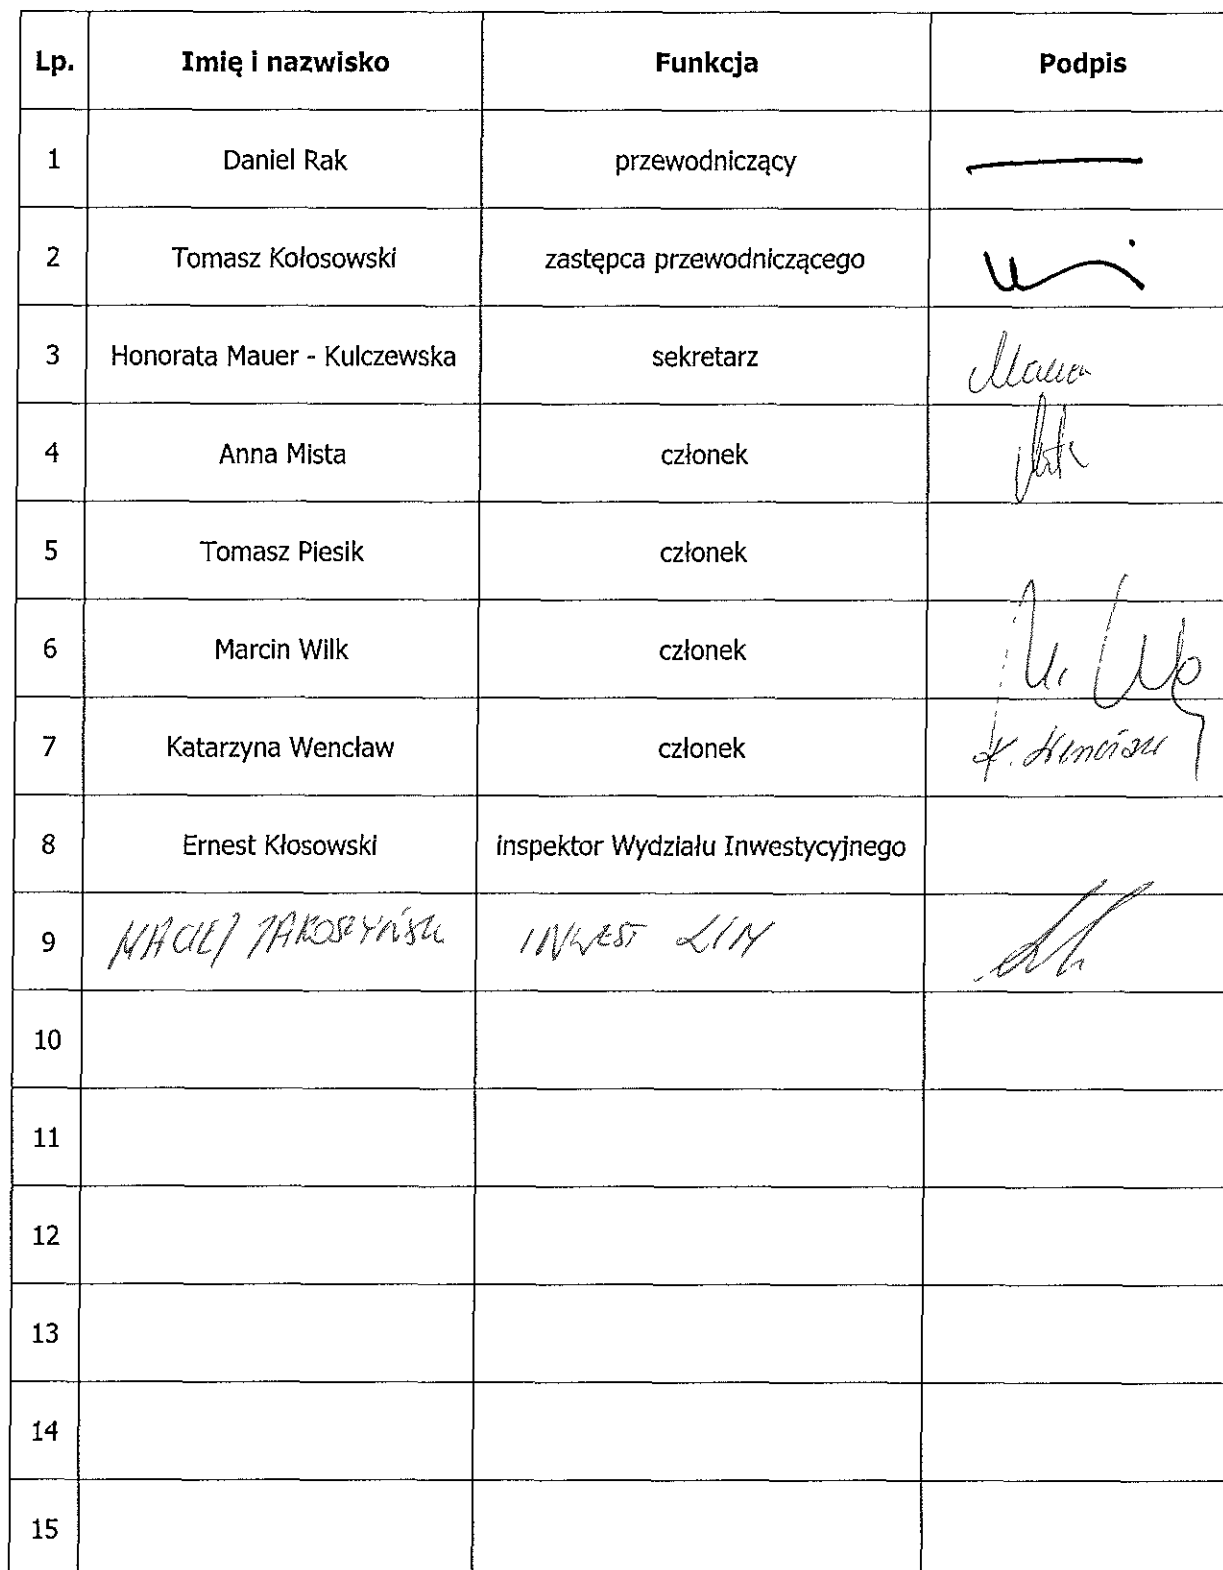 Lp. Imię i nazwisko Funkcja Podpis
1 Daniel Rak przewodniczący
2 Tomasz Kołosowski zastępca przewodniczącego
3 Honorata Mauer - Kulczewska sekretarz
4 Anna Mista członek
5 Tomasz Piesik członek
6 Marcin Wilk członek
7 Katarzyna Wencław członek
8 Ernest Kłosowski inspektor Wydziału Inwestycyjnego
9 MACIEJ INWEST LIM
10
11
12
13
14
15